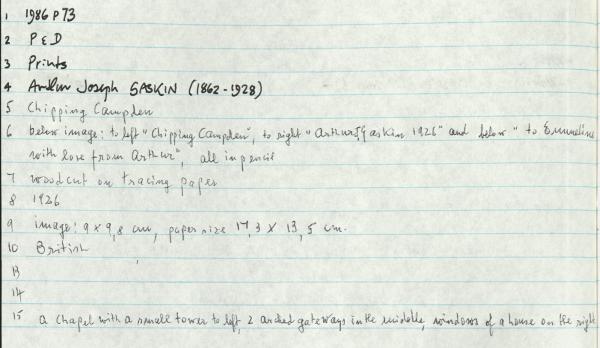 1 1986 P 73
2 P & D
3 Prints
4 Arthur Joseph GASKIN (1862-1928)
5 Chipping Campden
6 below image: to left "Chipping Campden", to right "Arthur J Gaskin 1926" and below "to Emmeline
with love from Arthur", all in pencil
7 woodcut on tracing paper
8 1926
9 image: 9 x 9,8 cm, paper size 17,3 x 13,5 cm.
10 British
13
14
15 a chapel with a small tower to left, 2 arched gateways in the middle, windows of a house on the right